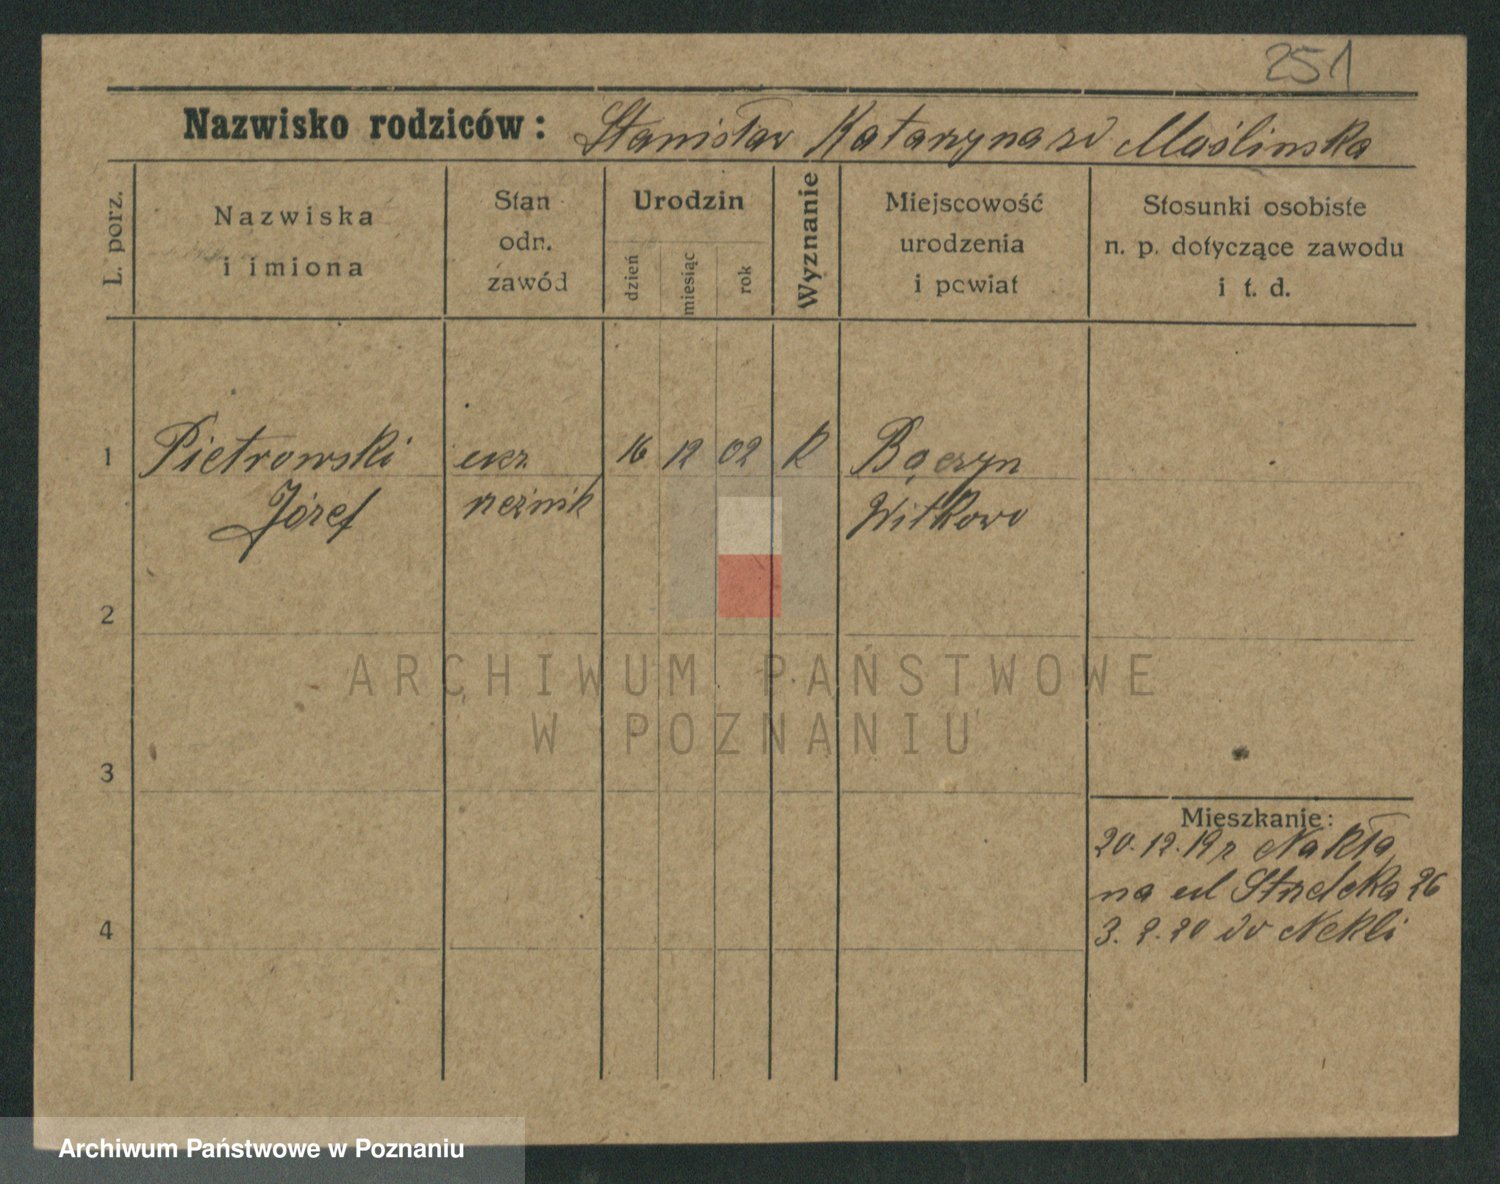 251
Nazwisko rodziców: Stanisław Katarzyna zd Moślinska
L. porz.
Nazwiska
i imiona
Stan
odn.
zawód
Urodzin
dzień
miesiąc
rok
Wyznanie
Miejscowość
urodzenia
i powiat
Stosunki osobiste
n. p. dotyczące zawodu
i t. d.
1 Pietrowski ucz 16 12 02 K
Józef rzeźnik Witkowo
2
3
4
Mieszkanie:
20.12.19 r Nakła
na ul 26
3.2.20 do Nekli
ARCHIWUM PAŃSTWOWE
W POZNANIU
Archiwum Państwowe w Poznaniu